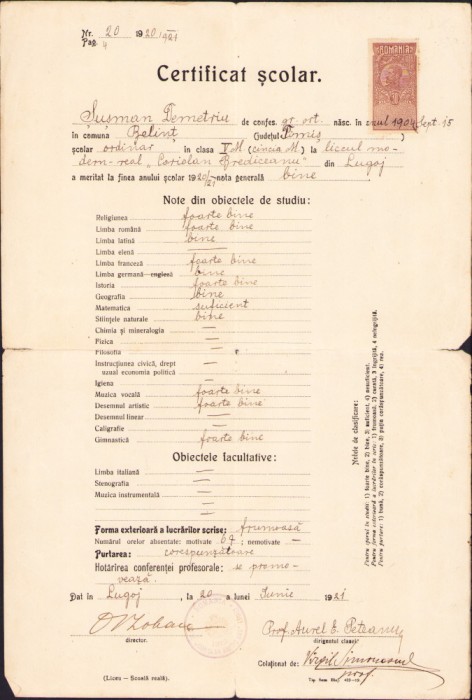 Nr. 20 1920/921
Pag. 4
ROMANIA
Certificat școlar.
Sușman Demetriu de confes. gr. ort. născ. în anul 1904 Sept. 15
în comuna Belinț (județul Timiș)
școlar ordinar în clasa V M (cincia M) la liceul mo-
dern-real „Coriolan Brediceanu" din Lugoj
a meritat la finea anului școlar 1920/21 nota generală bine
Note din obiectele de studiu:
Religiunea foarte bine
Limba română foarte bine
Limba latină bine
Limba elenă —
Limba franceză foarte bine
Limba germană engleză bine
Istoria foarte bine
Geografia bine
Matematica suficient
Științele naturale bine
Chimia și mineralogia —
Fizica —
Filosofia
Instrucțiunea civică, drept
uzual economia politică —
Igiena —
Muzica vocală foarte bine
Desemnul artistic foarte bine
Desemnul linear —
Caligrafie —
Gimnastică foarte bine
Obiectele facultative:
Limba italiană —
Stenografia —
Muzica instrumentală —
—
—
Forma exterioară a lucrărilor scrise: frumoasă
Numărul orelor absentate: motivate 64; nemotivate —
Purtarea: corespunzătoare
Hotărirea conferenței profesorale: se promo-
vează.
Dat în Lugoj, la 20 a lunei Iunie 1921
director.
Prof. Aurel E. Peteanu
dirigentul clasei
Colaționat de: Virgil Simonescul
prof.
(Liceu — Școală reală)
Notele de clasificare:
Pentru sporul în studii: 1) foarte bine, 2) bine, 3) suficient, 4) insuficient.
Pentru forma exterioară a lucrărilor în scris: 1) frumoasă, 2) curată, 3) îngrijită, 4) neîngrijită.
Pentru purtare: 1) bună, 2) corăspunzătoare, 3) puțin corăspunzătoare, 4) rea.